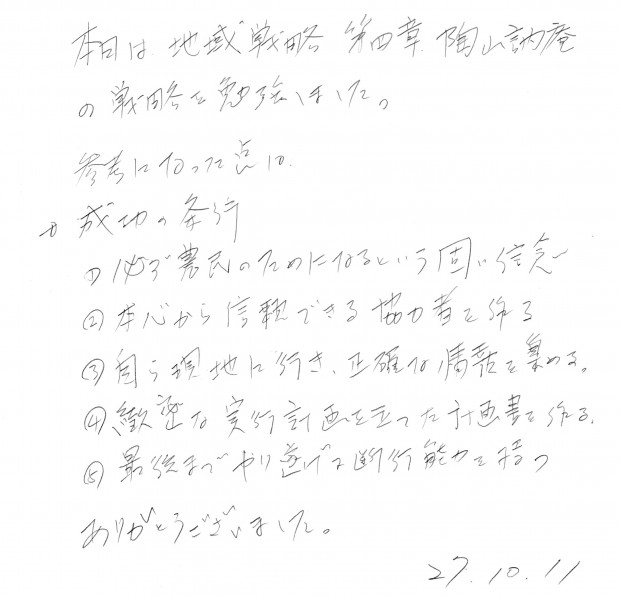 本日は 地域戦略 第四章 陶山訥庵
の戦略を勉強しました。
参考になった点は、
成功の条件
① 必ず農民のためになるという固い信念
② 本心から信頼できる協力者を作る
③ 自ら現地に行き、正確な情報を集める。
④ 緻密な実行計画を立った計画書を作る。
⑤ 最後までやり遂げる断行能力を持つ
ありがとうございました。
27.10.11